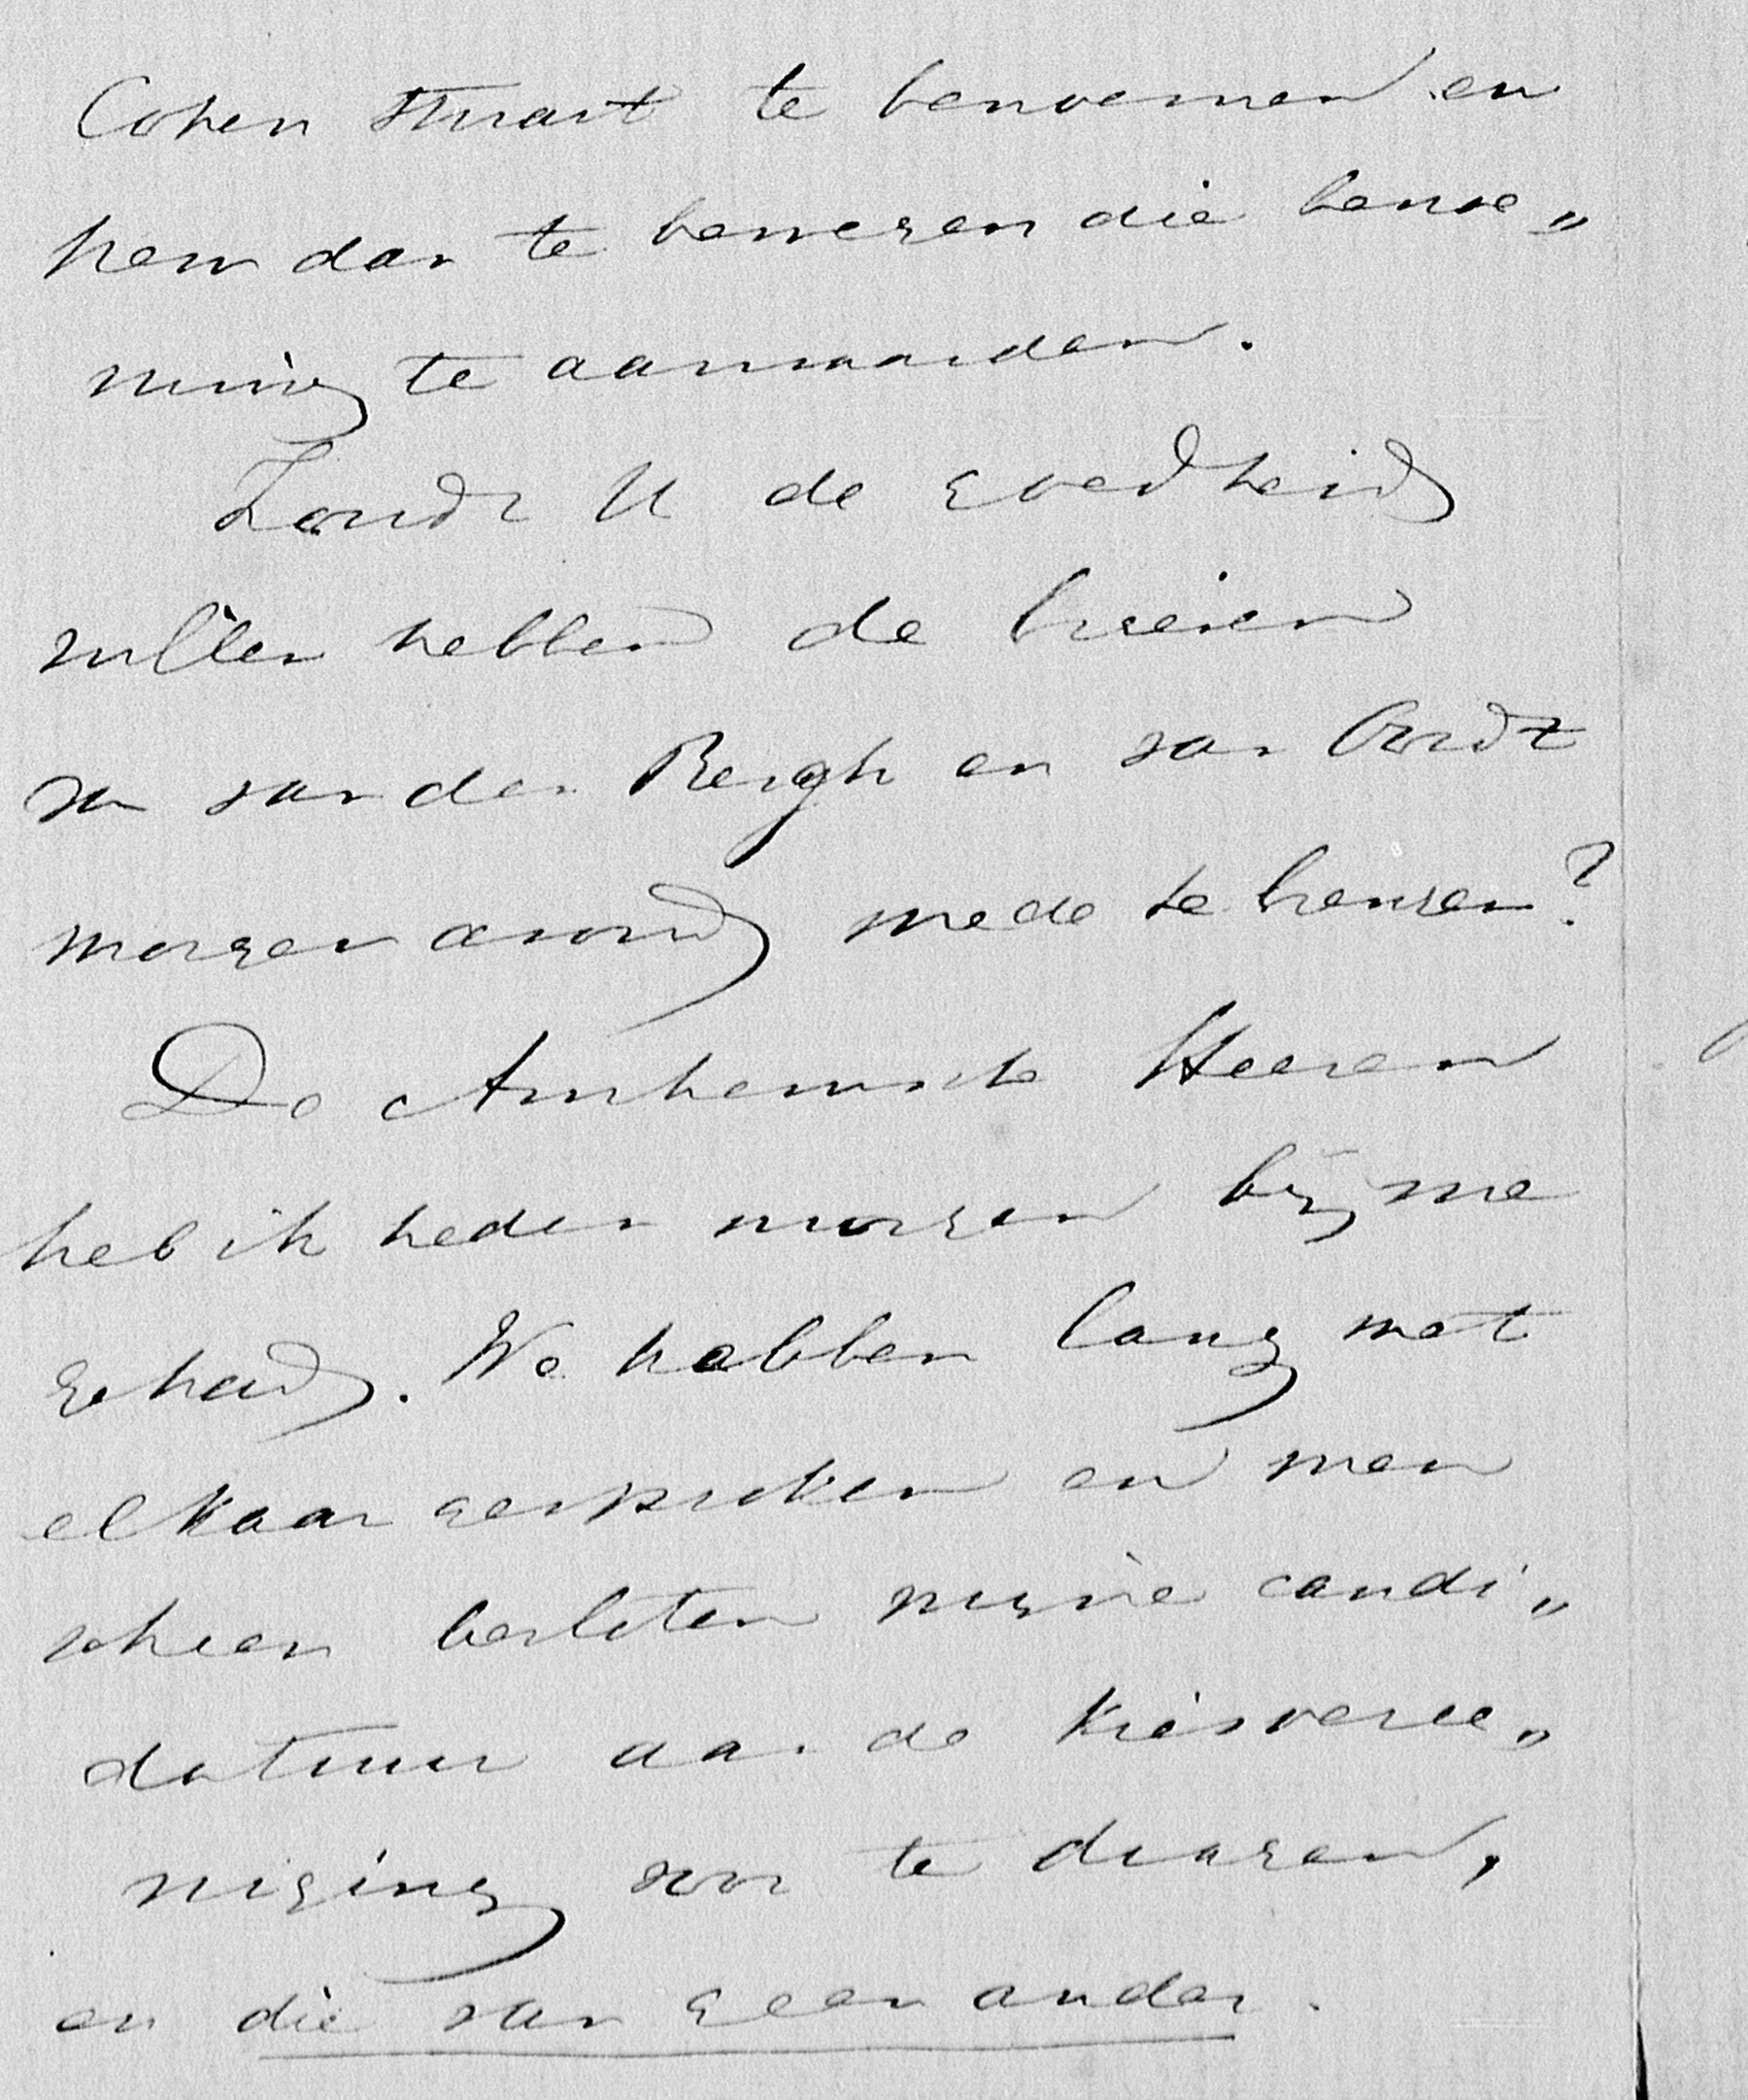 Cohen Stuart te benoemen en
hem dan te bewegen die benoe„
ming te aanvaarden.
Zoudt U de goedheid
willen hebben de brieven
van van den Bergh en van Oordt
morgen avond mede te brengen?
De Arnhemsche Heeren
heb ik heden morgen bij me
gehad. We hebben lang met
elkaar gesproken en men
scheen besloten mijne candi„
datuur aan de kiesveree„
niging voor te dragen,
en die van geen ander.